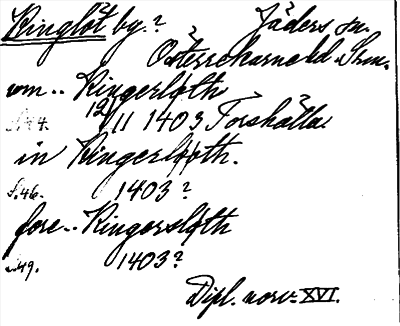 Ringlöt by.? Jäders sn.
Österrekarne hd. Srm.
om.. Ringerløth
s.44. 12/11 1403 Torshälla
in Ringerløøth.
s.46. 1403?
fore.. Ringorsløth
s.49. 1403?
Dipl. norv. XVI.